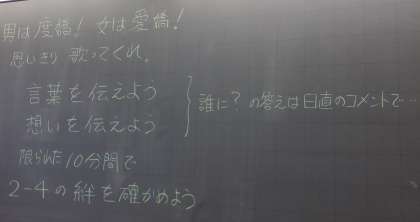 男は度胸! 女は愛嬌!
思いきり 歌ってくれ。
言葉を伝えよう
想いを伝えよう
誰に?の答えは日直のコメントで…
限られた10分間で
2-4の絆を確かめよう